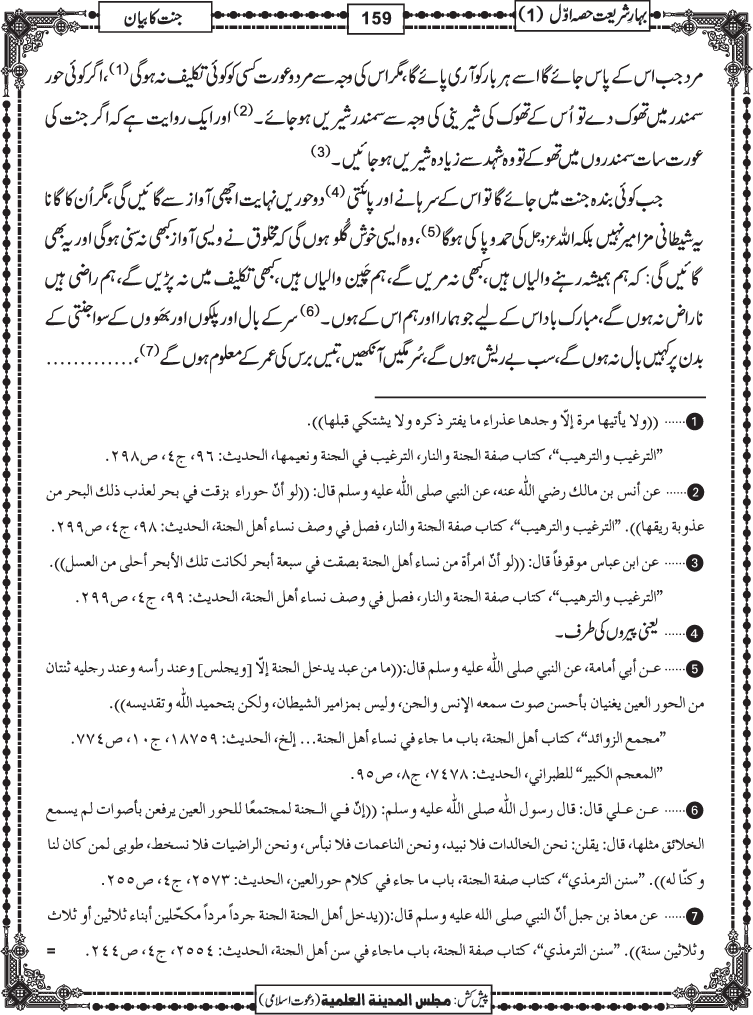 بہارِ شریعت حصہ اوّل (1)
159
جنت کا بیان
مرد جب اس کے پاس جائے گا اسے ہر بار کوآری پائے گا، مگر اس کی وجہ سے مرد و عورت کسی کو کوئی تکلیف نہ ہوگی (1)، اگر کوئی حور
سمندر میں تھوک دے تو اُس کے تھوک کی شیرینی کی وجہ سے سمندر شیریں ہو جائے۔ (2) اور ایک روایت ہے کہ اگر جنت کی
عورت سات سمندروں میں تھوکے تو وہ شہد سے زیادہ شیریں ہو جائیں۔ (3)
جب کوئی بندہ جنت میں جائے گا تو اس کے سرہانے اور پائنتی (4) دو حوریں نہایت اچھی آواز سے گائیں گی، مگر اُن کا گانا
یہ شیطانی مزامیر نہیں بلکہ اللہ عزوجل کی حمد و پاکی ہوگا (5)، وہ ایسی خوش گُلو ہوں گی کہ مخلوق نے ویسی آواز کبھی نہ سنی ہوگی اور یہ بھی
گائیں گی: کہ ہم ہمیشہ رہنے والیاں ہیں، کبھی نہ مریں گے، ہم چَین والیاں ہیں، کبھی تکلیف میں نہ پڑیں گے، ہم راضی ہیں
ناراض نہ ہوں گے، مبارک باد اس کے لیے جو ہمارا اور ہم اس کے ہوں۔ (6) سر کے بال اور پلکوں اور بھووں کے سوا جنتی کے
بدن پر کہیں بال نہ ہوں گے، سب بے ریش ہوں گے، سُرمگیں آنکھیں، تیس برس کی عمر کے معلوم ہوں گے (7)، .............
1 ...... ((ولا يأتيها مرة إلّا وجدها عذراء ما يفتر ذكره ولا يشتكي قبلها)).
”الترغيب والترهيب“، كتاب صفة الجنة والنار، الترغيب في الجنة ونعيمها، الحديث: ٩٦، ج٤، ص٢٩٨.
2 ...... عن أنس بن مالك رضي الله عنه، عن النبي صلى الله عليه وسلم قال: ((لو أنّ حوراء بزقت في بحر لعذب ذلك البحر من
عذوبة ريقها)). ”الترغيب والترهيب“، كتاب صفة الجنة والنار، فصل في وصف نساء أهل الجنة، الحديث: ٩٨، ج٤، ص٢٩٩.
3 ...... عن ابن عباس موقوفاً قال: ((لو أنّ امرأة من نساء أهل الجنة بصقت في سبعة أبحر لكانت تلك الأبحر أحلى من العسل)).
”الترغيب والترهيب“، كتاب صفة الجنة والنار، فصل في وصف نساء أهل الجنة، الحديث: ٩٩، ج٤، ص٢٩٩.
4 ...... یعنی پیروں کی طرف۔
5 ...... عن أبي أمامة، عن النبي صلى الله عليه وسلم قال:((ما من عبد يدخل الجنة إلّا [ويجلس] وعند رأسه وعند رجليه ثنتان
من الحور العين يغنيان بأحسن صوت سمعه الإنس والجن، وليس بمزامير الشيطان، ولكن بتحميد الله وتقديسه)).
”مجمع الزوائد“، كتاب أهل الجنة، باب ما جاء في نساء أهل الجنة... إلخ، الحديث: ١٨٧٥٩، ج١٠، ص٧٧٤.
”المعجم الكبير“ للطبراني، الحديث: ٧٤٧٨، ج٨، ص٩٥.
6 ...... عن علي قال: قال رسول الله صلى الله عليه وسلم: ((إنّ في الجنة لمجتمعًا للحور العين يرفعن بأصوات لم يسمع
الخلائق مثلها، قال: يقلن: نحن الخالدات فلا نبيد، ونحن الناعمات فلا نبأس، ونحن الراضيات فلا نسخط، طوبى لمن كان لنا
وكنّا له)). ”سنن الترمذي“، كتاب صفة الجنة، باب ما جاء في كلام حورالعين، الحديث: ٢٥٧٣، ج٤، ص٢٥٥.
7 ...... عن معاذ بن جبل أنّ النبي صلى الله عليه وسلم قال:((يدخل أهل الجنة الجنة جرداً مرداً مكحّلين أبناء ثلاثين أو ثلاث
وثلاثين سنة)). ”سنن الترمذي“، كتاب صفة الجنة، باب ماجاء في سن أهل الجنة، الحديث: ٢٥٥٤، ج٤، ص٢٤٤. =
پیش کش: مجلس المدینة العلمیة (دعوت اسلامی)